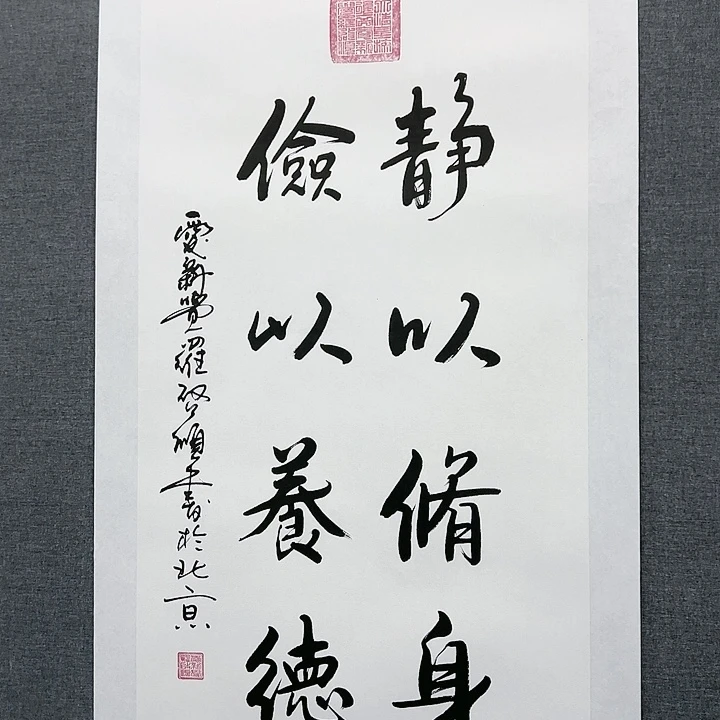 静以脩身
儉以養德
愛新覺羅啓書於北京